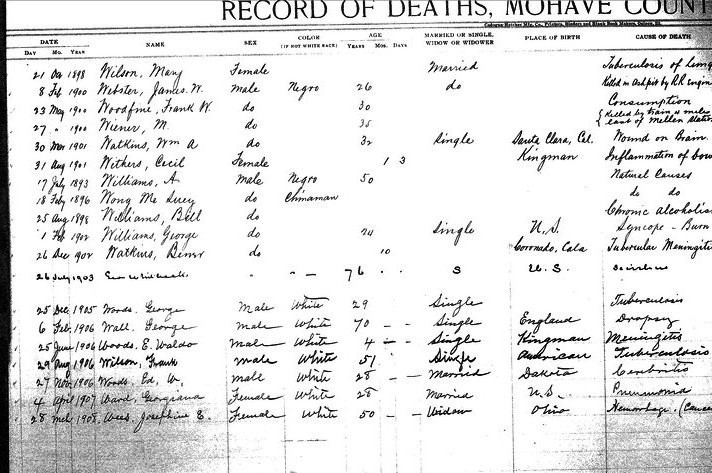 RECORD OF DEATHS, MOHAVE COUNT
DATE NAME SEX COLOR AGE MARRIED OR SINGLE, PLACE OF BIRTH CAUSE OF DEATH
DAY MO. YEAR (IF NOT WHITE RACE) YEARS MOS. DAYS WIDOW OR WIDOWER
21 Oct 1898 Wilson, Mary Female Married Tuberculosis of Lung
8 Feb 1900 Webster, James. W. male Negro 26 do Killed in Ashpit by R.R. Engin
23 May 1900 Woodfine, Frank W. do 30 Consumption
27 " 1900 Wiener, M. do 35 Killed by train, 4 miles east of Mellen Station
30 Mar 1901 Watkins, Wm A do 32 Single Santa Clara, Cal. Wound on Brain
31 Aug 1901 Withers, Cecil Female 1 3 Kingman Inflammation of bow
17 July 1893 Williams, A male Negro 50 Natural Causes
18 Feby 1896 Wong Me Suey do Chinaman do do
25 Aug 1898 Williams, Bell do Chronic Alcoholis
1 Feb 1902 Williams, George do 24 Single U.S. Syncope - Burn
26 Dec 1902 Watkins, do 10 Coronado, Cala Tubercular Meningiti
26 July 1903 " - " - 76 - S U. S.
25 Dec. 1905 Woods. George Male White 29 Single Tuberculosis
6 Feb. 1906 Wall. George male White 70 - - Single England Dropsy
25 June 1906 Woods. E. Waldo Male White 4 - - Single Kingman Meningitis
29 Aug 1906 Wilson, Frank male White 51 Single American Tuberculosis
27 Nov. 1906 Woods. Ed. W. male White 28 - - Married Dakota Cerebritis
4 April 1907 Ward, Georgiana Female White 28 Married U.S. Pneumonia
28 1908. Wees. Josephine E. Female White 50 - - Widow Ohio Hemorhage. (Cance